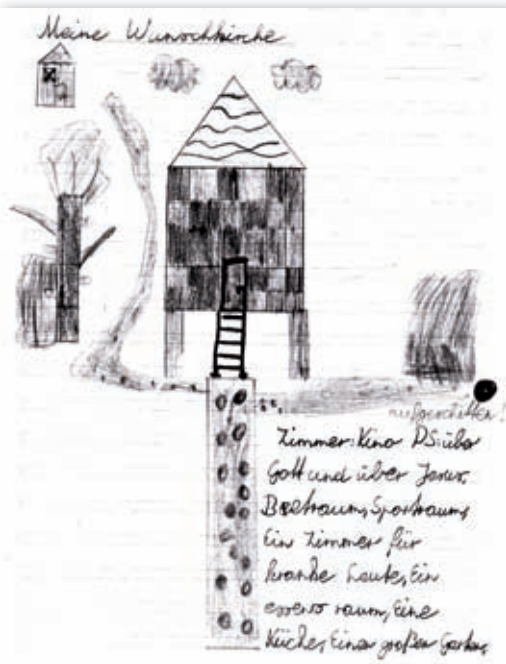 Meine Wunschkirche
aufgeschitten!
Zimmer: Kino PS: über
Gott und über Jesus,
Beetraum, Sportraum,
Ein Zimmer für
kranke Leute, Ein
essens raum, Eine
Küche, Einen großen Garten,